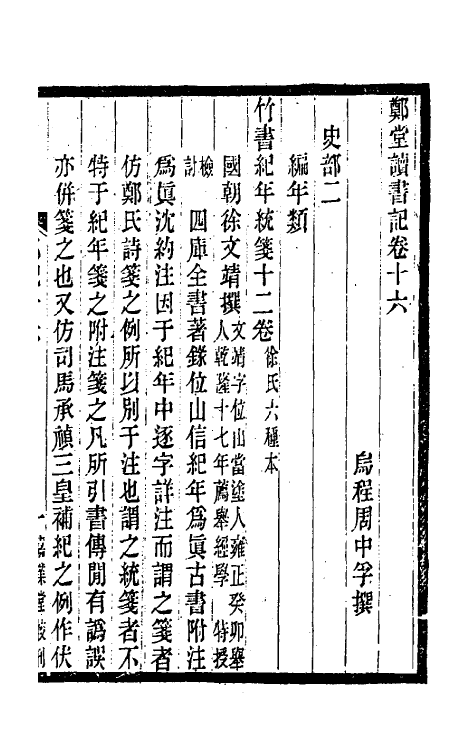 鄭堂讀書記卷十六
烏程周中孚撰
史部二
編年類
竹書紀年統箋十二卷徐氏六種本
國朝徐文靖撰文靖字位山當塗人雍正癸卯舉
人乾隆十七年薦舉經學特授
檢討四庫全書著錄位山信紀年爲眞古書附注
爲眞沈約注因于紀年中逐字詳注而謂之箋者
仿鄭氏詩箋之例所以別于注也謂之統箋者不
特于紀年箋之附注箋之凡所引書傳閒有譌誤
亦併箋之也又仿司馬承禎三皇補紀之例作伏